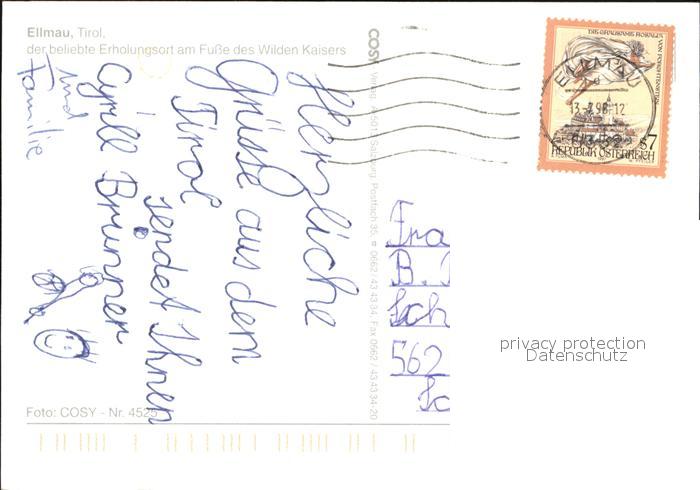 Ellmau, Tirol,
der beliebte Erholungsort am Fuße des Wilden Kaisers
Herzliche
Grüsse aus dem
Tirol
sendet Ihnen
Cyrill Brunner
und
Familie
Foto: COSY - Nr. 4525
COSY Verlag, A-5017 Salzburg, Postfach 35, 0662/43 43 34, Fax 0662/43 43 34-20
DIE GRAUSAME ROSALIE VON FORCHTENSTEIN
S7
REPUBLIK ÖSTERREICH
ELLMAU
Fra
B.
Sch
562
Sc
privacy protection
Datenschutz